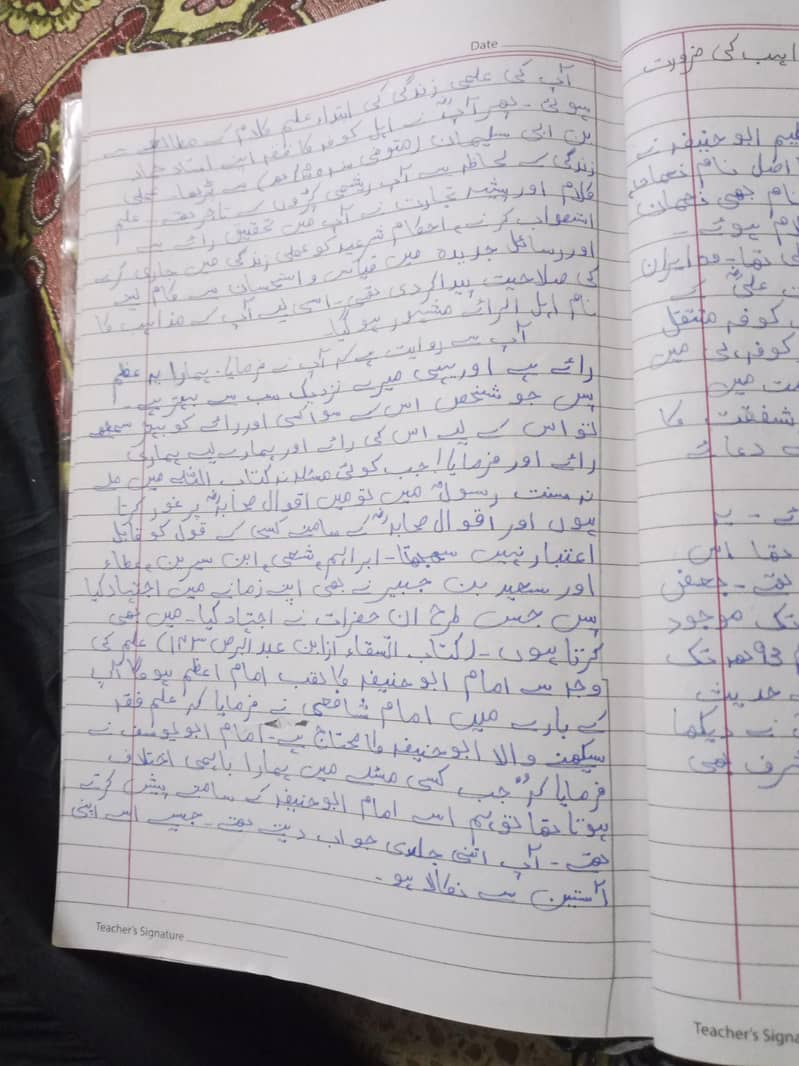 Date
آپ کی علمی زندگی کی ابتداء علم کلام کے مطالعہ سے
ہوئی - پھر آپؒ نے اہل کوفہ کا فقہ اپنے استاد حماد
بن ابی سلیمان (متوفی سنہ) سے پڑھا۔ عملی
زندگی کے لحاظ سے آپ ریشمی کپڑوں کے تاجر تھے - علم
کلام اور پیشہ تجارت نے آپ میں تحقیق رائے سے
کرنے، احکام شرعیہ کو عملی زندگی میں جاری کرنے
اور مسائل جدیدہ میں قیاس و استحسان سے کام لینے
کی صلاحیت پیدا کر دی تھی - اسی لیے آپ کے مذاہب کا
نام اہل الرائے مشہور ہو گیا
آپ سے روایت ہے کہ آپ نے فرمایا۔ ہمارا یہ عظم
رائے ہے اور یہی میرے نزدیک سب سے بہتر ہے -
پس جو شخص اس کے سوا کسی اور رائے کو بہتر سمجھے
تو اس کے لیے اس کی رائے اور ہمارے لیے ہماری
رائے اور فرمایا! جب کوئی مسئلہ نہ کتاب اللہ میں ملے
نہ سنت رسولؐ میں تو میں اقوال صحابہؓ پر غور کرتا
ہوں اور اقوال صحابہؓ کے سامنے کسی کے قول کو قابل
اعتبار نہیں سمجھتا - ابراہیم، شعبی، ابن سرین، عطاء
اور سعید بن جبیر نے بھی اپنے زمانے میں اجتہاد کیا
پس جس طرح ان حضرات نے اجتہاد کیا - میں بھی
کرتا ہوں - (کتاب ازابن عبد البرص ۱۴۳) علم کی
وجہ سے امام ابو حنیفہ کا لقب امام اعظم ہو گا آپ
کے بارے میں امام شافعی نے فرمایا کہ علم فقہ
سیکھنے والا ابو حنیفہ کا محتاج ہے - امام ابو یوسف نے
فرمایا کہ "جب کسی مسئلے میں ہمارا باہمی اختلاف
ہوتا تھا تو ہم اسے امام ابو حنیفہ کے سامنے پیش کرتے
تھے - آپ اتنی جلدی جواب دیتے تھے - جیسے اسے اپنی
آستین سے نکالا ہو -
Teacher's Signature
کی ضرورت
ابو حنیفہ نے
اصل نام نعمان
نام بھی نعمان
ہوئے -
تھا - وہ ایران
علیؓ کے
کوفہ منتقل
کوفہ ہی میں
میں
شفقت کا
دعائے
یہ
تھا اس
تھے - جعفر
تک موجود
93ھ تک
حدیث
نے دیکھا
شرف بھی
Teacher's Signa